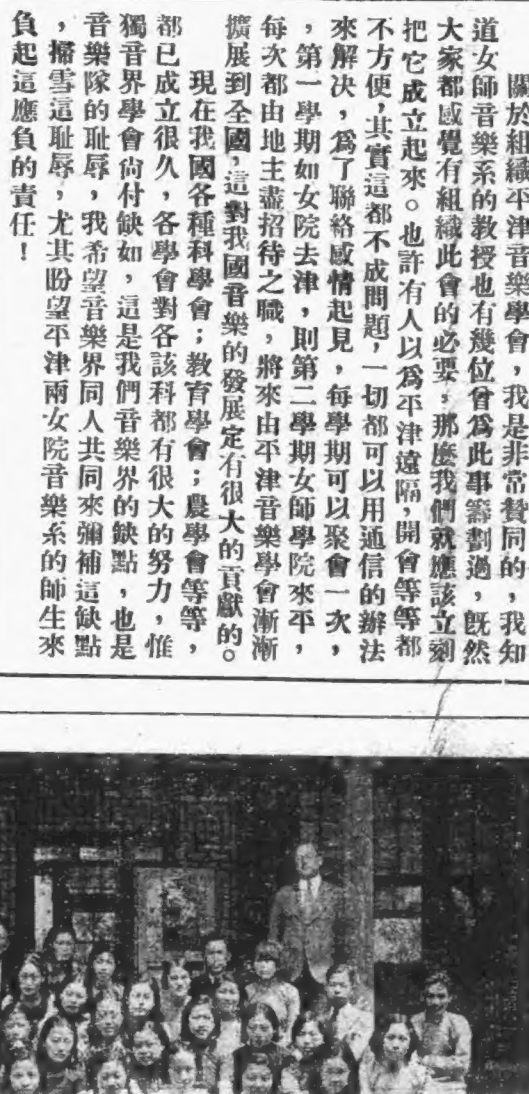 關於組織平津音樂學會，我是非常贊同的，我知
道女師音樂系的教授也有幾位曾爲此事籌劃過，旣然
大家都感覺有組織此會的必要，那麽我們就應該立刻
把它成立起來。也許有人以爲平津遠隔，開會等等都
不方便，其實這都不成問題，一切都可以用通信的辦法
來解決，爲了聯絡感情起見，每學期可以聚會一次，
，第一學期如女院去津，則第二學期女師學院來平，
每次都由地主盡招待之職，將來由平津音樂學會漸漸
擴展到全國，這對我國音樂的發展定有很大的貢獻的。
現在我國各種科學會；教育學會；農學會等等，
都已成立很久，各學會對各該科都有很大的努力，惟
獨音界學會尙付缺如，這是我們音樂界的缺點，也是
音樂隊的耻辱，我希望音樂界同人共同來彌補這缺點
，掃雪這耻辱，尤其盼望平津兩女院音樂系的師生來
負起這應負的責任！